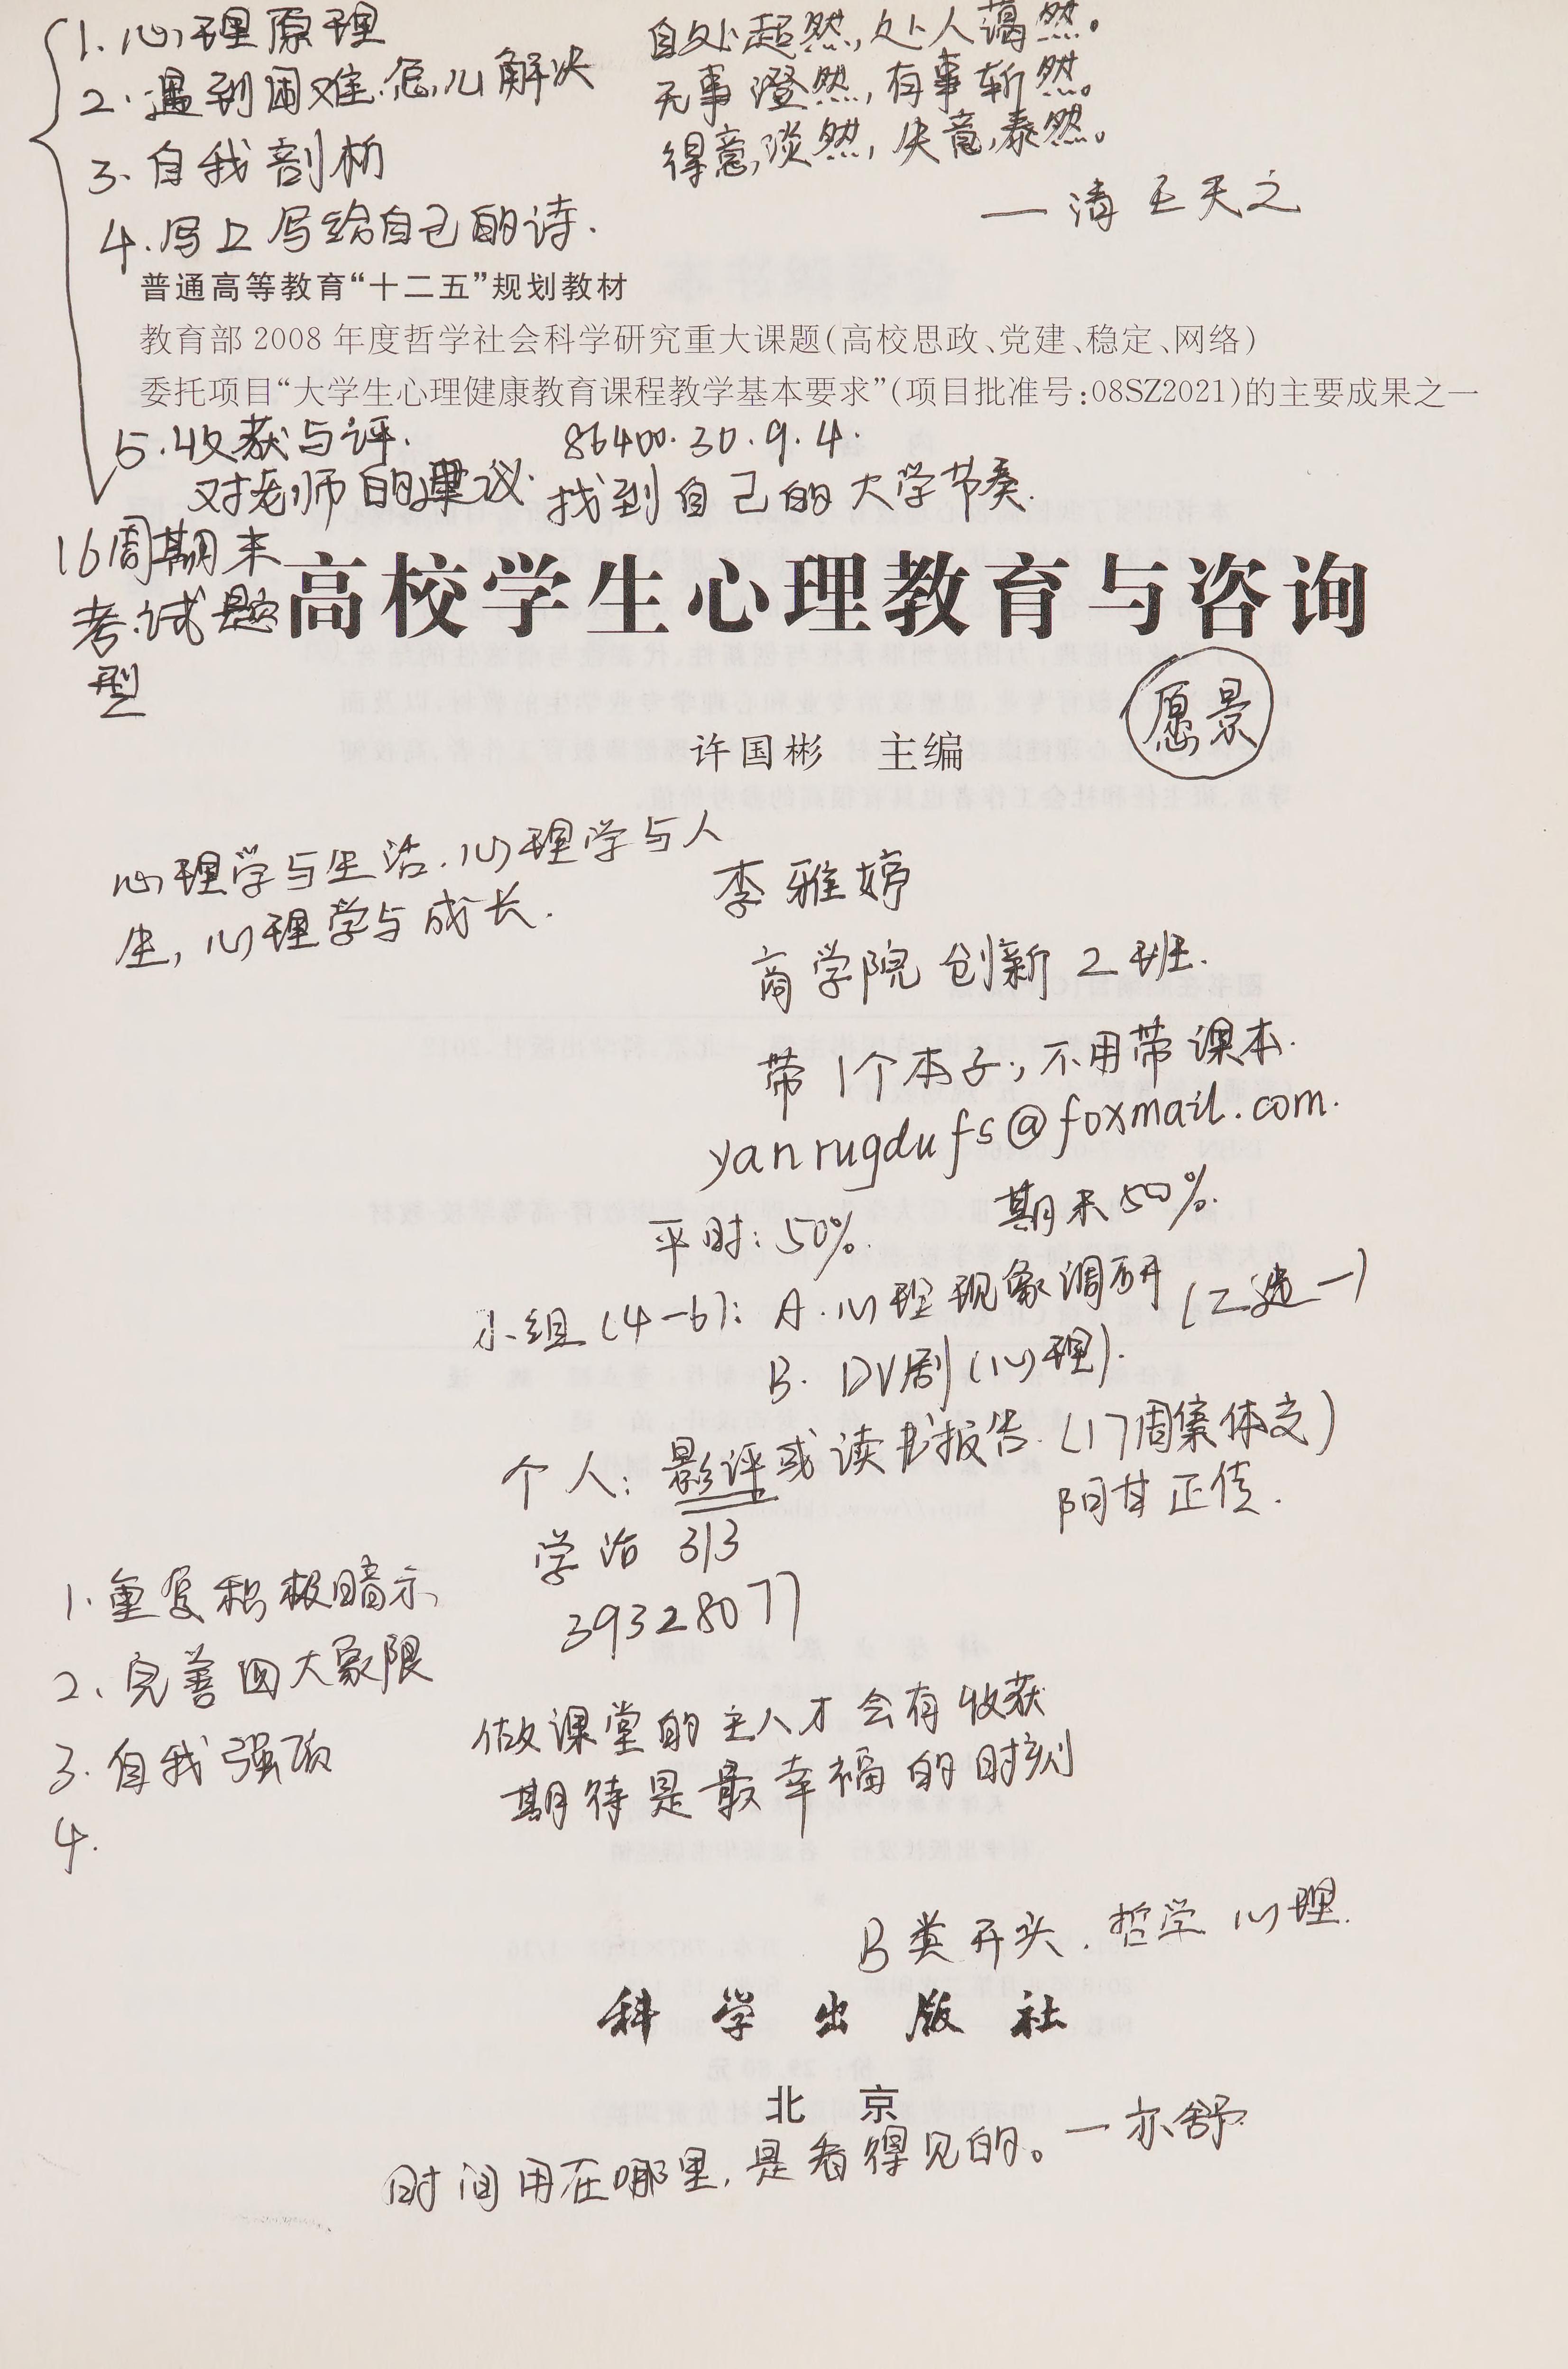 1.心理原理
2.遇到困难,怎么解决
3.自我剖析
4.写上写给自己的诗.
自处超然,处人蔼然。
无事澄然,有事斩然。
得意淡然,失意泰然。
—清 王天之
普通高等教育“十二五”规划教材
教育部 2008 年度哲学社会科学研究重大课题(高校思政、党建、稳定、网络)
委托项目“大学生心理健康教育课程教学基本要求”(项目批准号:08SZ2021)的主要成果之一
5.收获与评.
对老师的建议.
86400.30.9.4.
找到自己的大学节奏.
16周期末
考试题
型
高校学生心理教育与咨询
愿景
许国彬 主编
心理学与生活.心理学与人
生,心理学与成长.
李雅婷
商学院 创新 2班.
带1个本子,不用带课本.
yanrugdufs@foxmail.com.
平时:50%. 期末50%.
小组(4-6):A.心理现象调研 (二选一)
B.DV剧(心理).
个人:影评或读书报告.(17周集体交)
阿甘正传.
学治 313
39328077
1.重复积极暗示
2、完善四大象限
3.自我强项
4.
做课堂的主人才会有收获
期待是最幸福的时刻
B类开头.哲学 心理.
科学出版社
北京
时间用在哪里,是看得见的。—亦舒